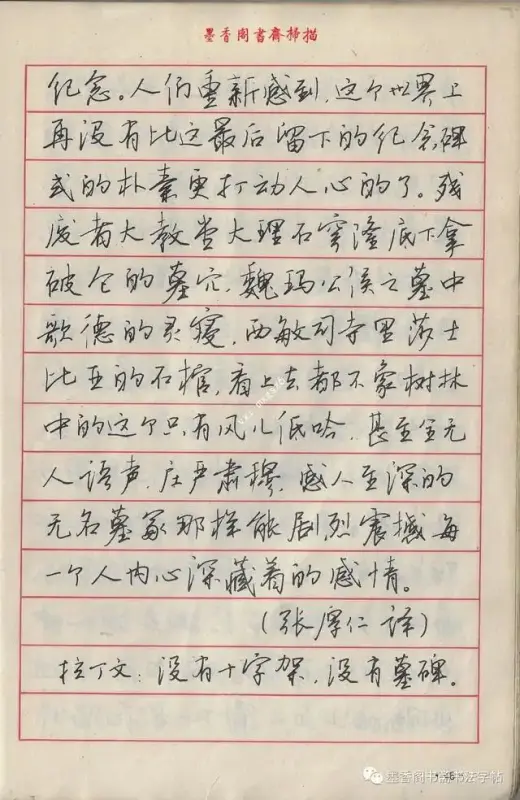 墨香阁书斋扫描
纪念。人们重新感到,这个世界上
再没有比这最后留下的纪念碑
式的朴素更打动人心的了。残
废者大教堂大理石穹隆底下拿
破仑的墓穴,魏玛公侯之墓中
歌德的灵寝,西敏司寺里莎士
比亚的石棺,看上去都不象树林
中的这个只有风儿低哈,甚至全无
人语声,庄严肃穆,感人至深的
无名墓冢那样能剧烈震撼每
一个人内心深藏着的感情。
(张厚仁 译)
拉丁文:没有十字架,没有墓碑。
墨香阁书斋书法字帖